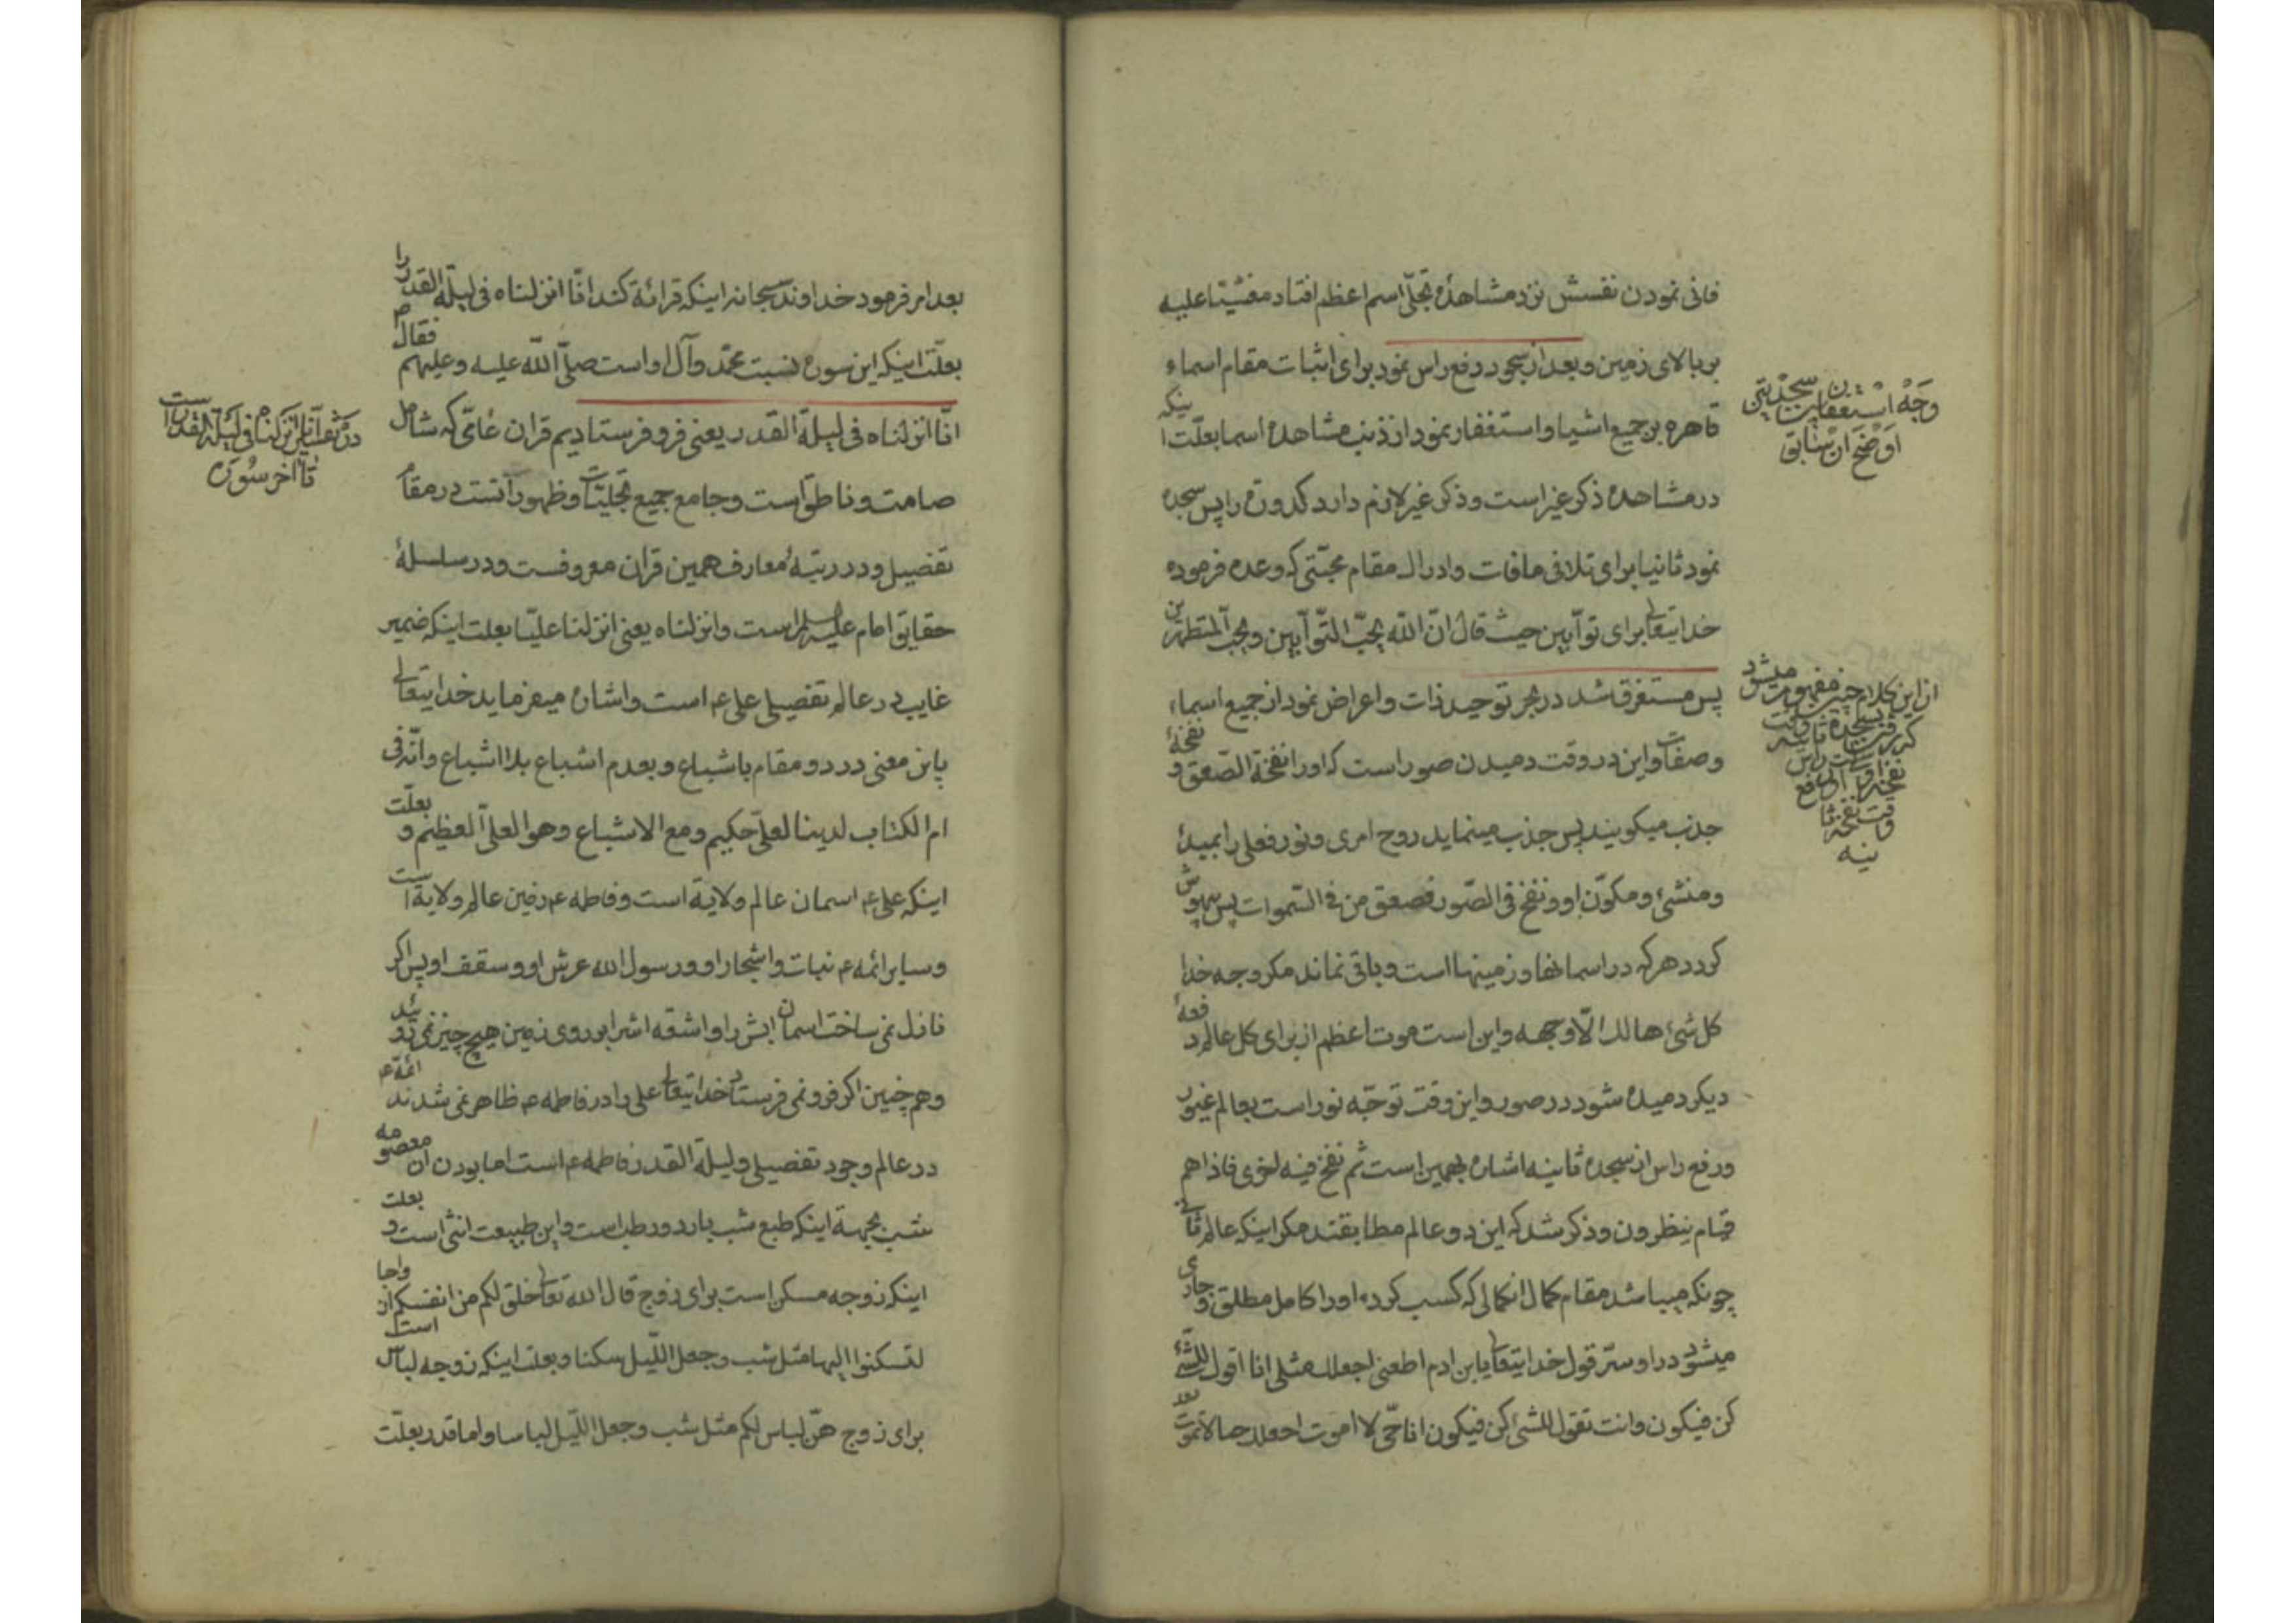 فانی نمودن نفسش نزد مشاهدهٔ تجلّی اسم اعظم افتاد مغشیّا علیه
بر بالای زمین و بعد از سجود رفع راس نمود برای اثبات مقام اسماء
قاهره بر جمیع اشیا و استغفار نمود از ذنب مشاهده اسما بعلّت اینکه
در مشاهده ذکر غیر است و ذکر غیر لازم دارد کدورة را پس سجده
نمود ثانیا برای تلافی مافات و ادراک مقام محبّتی که وعده فرموده
خدایتعالی برای توّابین حیث قال انّ اللّه یحبّ التّوّابین و یحبّ المتطهّرین
پس مستغرق شد در بحر توحید ذات و اعراض نمود از جمیع اسماء
وصفات و این در وقت دمیدن صور است که او را نفخة الصّعق و نفخهٔ
جذب میکویند پس جذب مینماید روح امری و نور فعلی را بمبدأ
و منشیء و مکوّن او و نفخ فی الصّور فصعق من فی السّموات پس بیهوش
کردد هر که در اسمانها و زمینها است و باقی نماند مکر وجه خدا
کل شیء هالک الّا وجهه و این است موت اعظم از برای کل عالم دفعهٔ
دیکر دمیده شود در صور و این وقت توجّه نور است بعالم غیور
ورفع راس از سجده ثانیه اشاره بهمین است ثم نفخ فیه اخری فاذا هم
قیام ینظرون و ذکر شد که این دو عالم مطابقند مکر اینکه عالم ثانی
چونکه میباشد مقام کمال انکمالی که کسب کرده او را کامل مطلق و جاری
میشود در او سرّ قول خدایتعالی یابن ادم اطعنی اجعلک مثلی انا اقول للشّیء
کن فیکون وانت تقول للشیء کن فیکون انا حّی لا اموت اجعلک حیا لاتموت بعد
وَجْه استغفار بین سجدتین
اَوضَح از سٰابق
از این کلام چنین مفهوم میشود
بعد امر فرمود خداوند سبحانه اینکه قرائة کند انّا انزلناه فی لیلة القدر را
بعلّت اینکه این سوره نسبت محمّد وآل او است صلّی اللّه علیه وعلیهم فقال
انّا انزلناه فی لیلة القدر یعنی فرو فرستادیم قران عامّی که شامل
صامت و ناطق است و جامع جمیع تجلیّات و ظهورات است در مقام
تفصیل و در رتبهٔ معارف همین قران معروفست ودر سلسلهٔ
حقایق امام علیه السلام است وانزلناه یعنی انزلنا علیّا بعلت اینکه ضمیر
غایب در عالم تفصیلی علی ع است واشاره میفرماید خدایتعالی
باین معنی در دو مقام باشباع و بعدم اشباع بلا اشباع وانّه فی
ام الکتاب لدینا لعلیّ حکیم و مع الاشباع وهو العلیّ العظیم و بعلّت
اینکه علی ع اسمان عالم ولایة است و فاطمه ع زمین عالم ولایة است
وسایر ائمه ع نبات واشجار او و رسول الله عرش او و سقف او پس اکر
نازل نمی ساخت اسمان ابش را و اشقه اش را بر روی زمین هیچ چیز نمی روئید
و هم چنین اکر فرو نمی فرستاد خدایتعالی علی را در فاطمه ع ظاهر نمی شدند ائمّه ع
در عالم وجود تفصیلی و لیلة القدر فاطمه ع است اما بودن ان معصومه
شب بجهة اینکه طبع شب بارد و رطب است و این طبیعت انثی است و بعلت
اینکه زوجه مسکن است برای زوج قال الله تعالی خلق لکم من انفسکم ازواجا
لتسکنوا الیها مثل شب وجعل اللّیل سکنا و بعلت اینکه زوجه لباس است
برای زوج هنّ لباس لکم مثل شب و جعل اللّیل لباسا و اما قدر بعلّت
در تفسیر انا انزلناه فی لیلة القدر است
تا آخر سُورَه